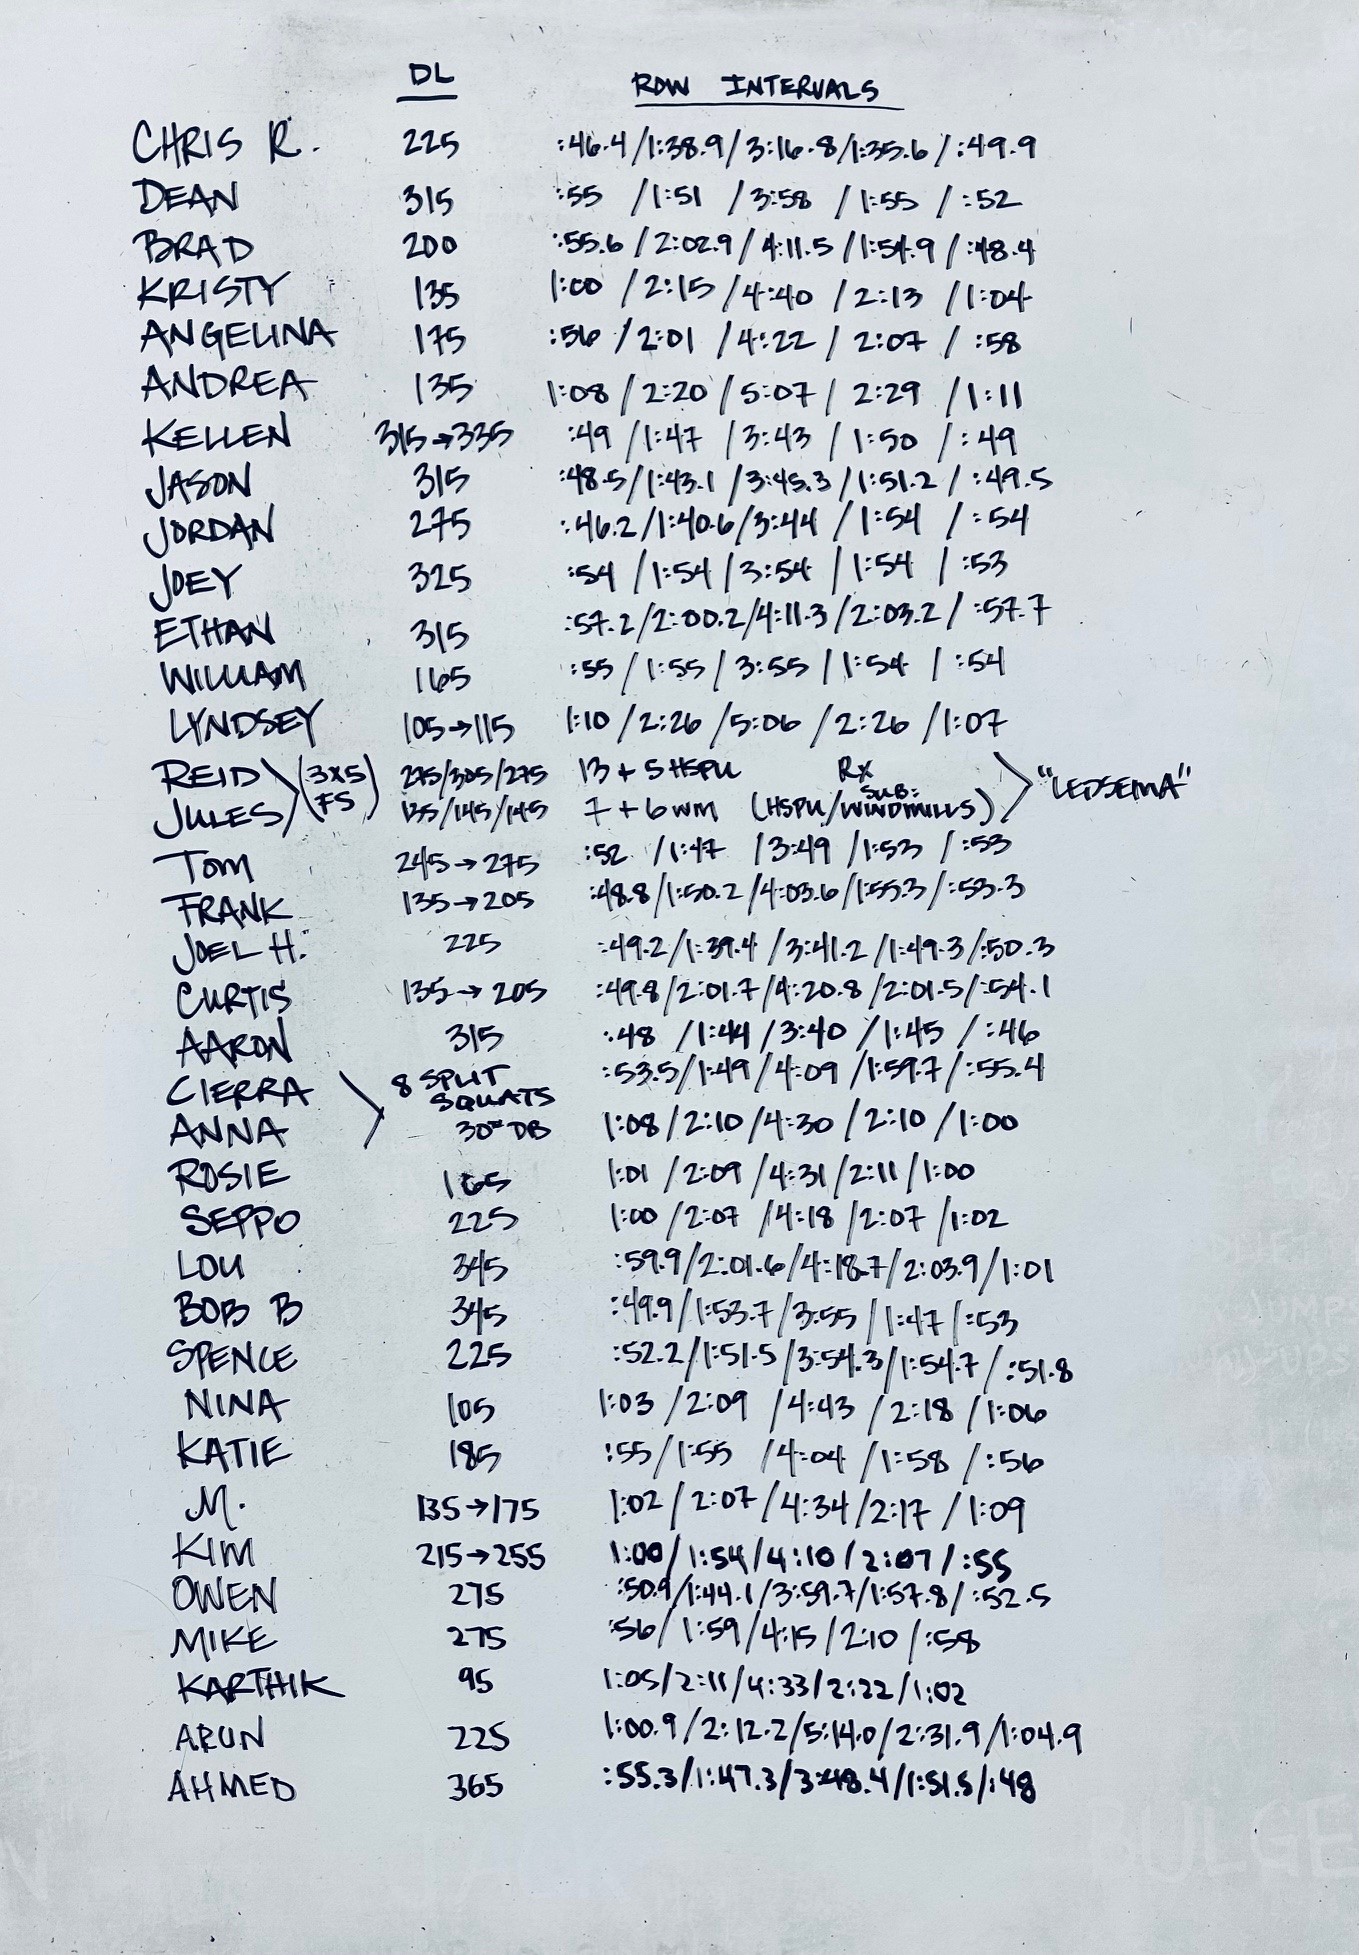 DL ROW INTERVALS
CHRIS R. 225 :46.4/1:38.9/3:16.8/1:35.6/:49.9
DEAN 315 :55 /1:51 /3:58 /1:55 /:52
BRAD 200 :55.6/2:02.9/4:11.5/1:54.9/:48.4
KRISTY 135 1:00 /2:15 /4:40 /2:13 /1:04
ANGELINA 175 :56 /2:01 /4:22 / 2:07 / :58
ANDREA 135 1:08 /2:20 /5:07/ 2:29 /1:11
KELLEN 315→335 :49 /1:47 /3:43 / 1:50 /:49
JASON 315 :48.5/1:43.1 /3:45.3/1:51.2/ :49.5
JORDAN 275 :46.2/1:40.6/3:44 /1:54 /:54
JOEY 325 :54 /1:54 /3:54 /1:54 / :53
ETHAN 315 :57.2/2:00.2/4:11.3/2:03.2/ :57.7
WILLIAM 165 :55 /1:55 / 3:55 /1:54 / :54
LYNDSEY 105→115 1:10 /2:26 /5:06 /2:26 /1:07
REID (3X5 275/305/275 13 + 5 HSPU Rx
JULES FS) 135/145/145 7 + 6 WM (HSPU/SUB: WINDMILLS) "LEDSEMA"
TOM 245→275 :52 /1:47 /3:49 /1:53 /:53
FRANK 135→205 :48.8/1:50.2/4:03.6/1:55.3/:53.3
JOEL H. 225 :49.2/1:39.4 /3:41.2 /1:49.3/:50.3
CURTIS 135→205 :49.8/2:01.7/4:20.8/2:01.5/:54.1
AARON 315 :48 /1:44 /3:40 /1:45 /:46
CIERRA 8 SPLIT SQUATS :53.5/1:49/4:09 /1:59.7/:55.4
ANNA 30# DB 1:08/2:10/4:30 /2:10 /1:00
ROSIE 165 1:01 /2:09 /4:31/2:11/1:00
SEPPO 225 1:00 /2:07 /4:18 /2:07 /1:02
LOU 345 :59.9/2:01.6/4:18.7/2:03.9/1:01
BOB B 345 :49.9/1:53.7/3:55 /1:47/:53
SPENCE 225 :52.2/1:51.5/3:54.3/1:54.7/:51.8
NINA 105 1:03 /2:09 /4:43 /2:18 /1:06
KATIE 185 :55/1:55 /4:04 /1:58 /:56
M. 135→175 1:02/2:07/4:34/2:17 /1:09
KIM 215→255 1:00/1:54/4:10/2:07/:55
OWEN 275 :50.9/1:44.1/3:59.7/1:57.8/:52.5
MIKE 275 :56/ 1:59/4:15 /2:10 /:58
KARTHIK 95 1:05/2:11/4:33/2:22/1:02
ARUN 225 1:00.9/2:12.2/5:14.0/2:31.9/1:04.9
AHMED 365 :55.3/1:47.3/3:48.4/1:51.5/:48
BULGE